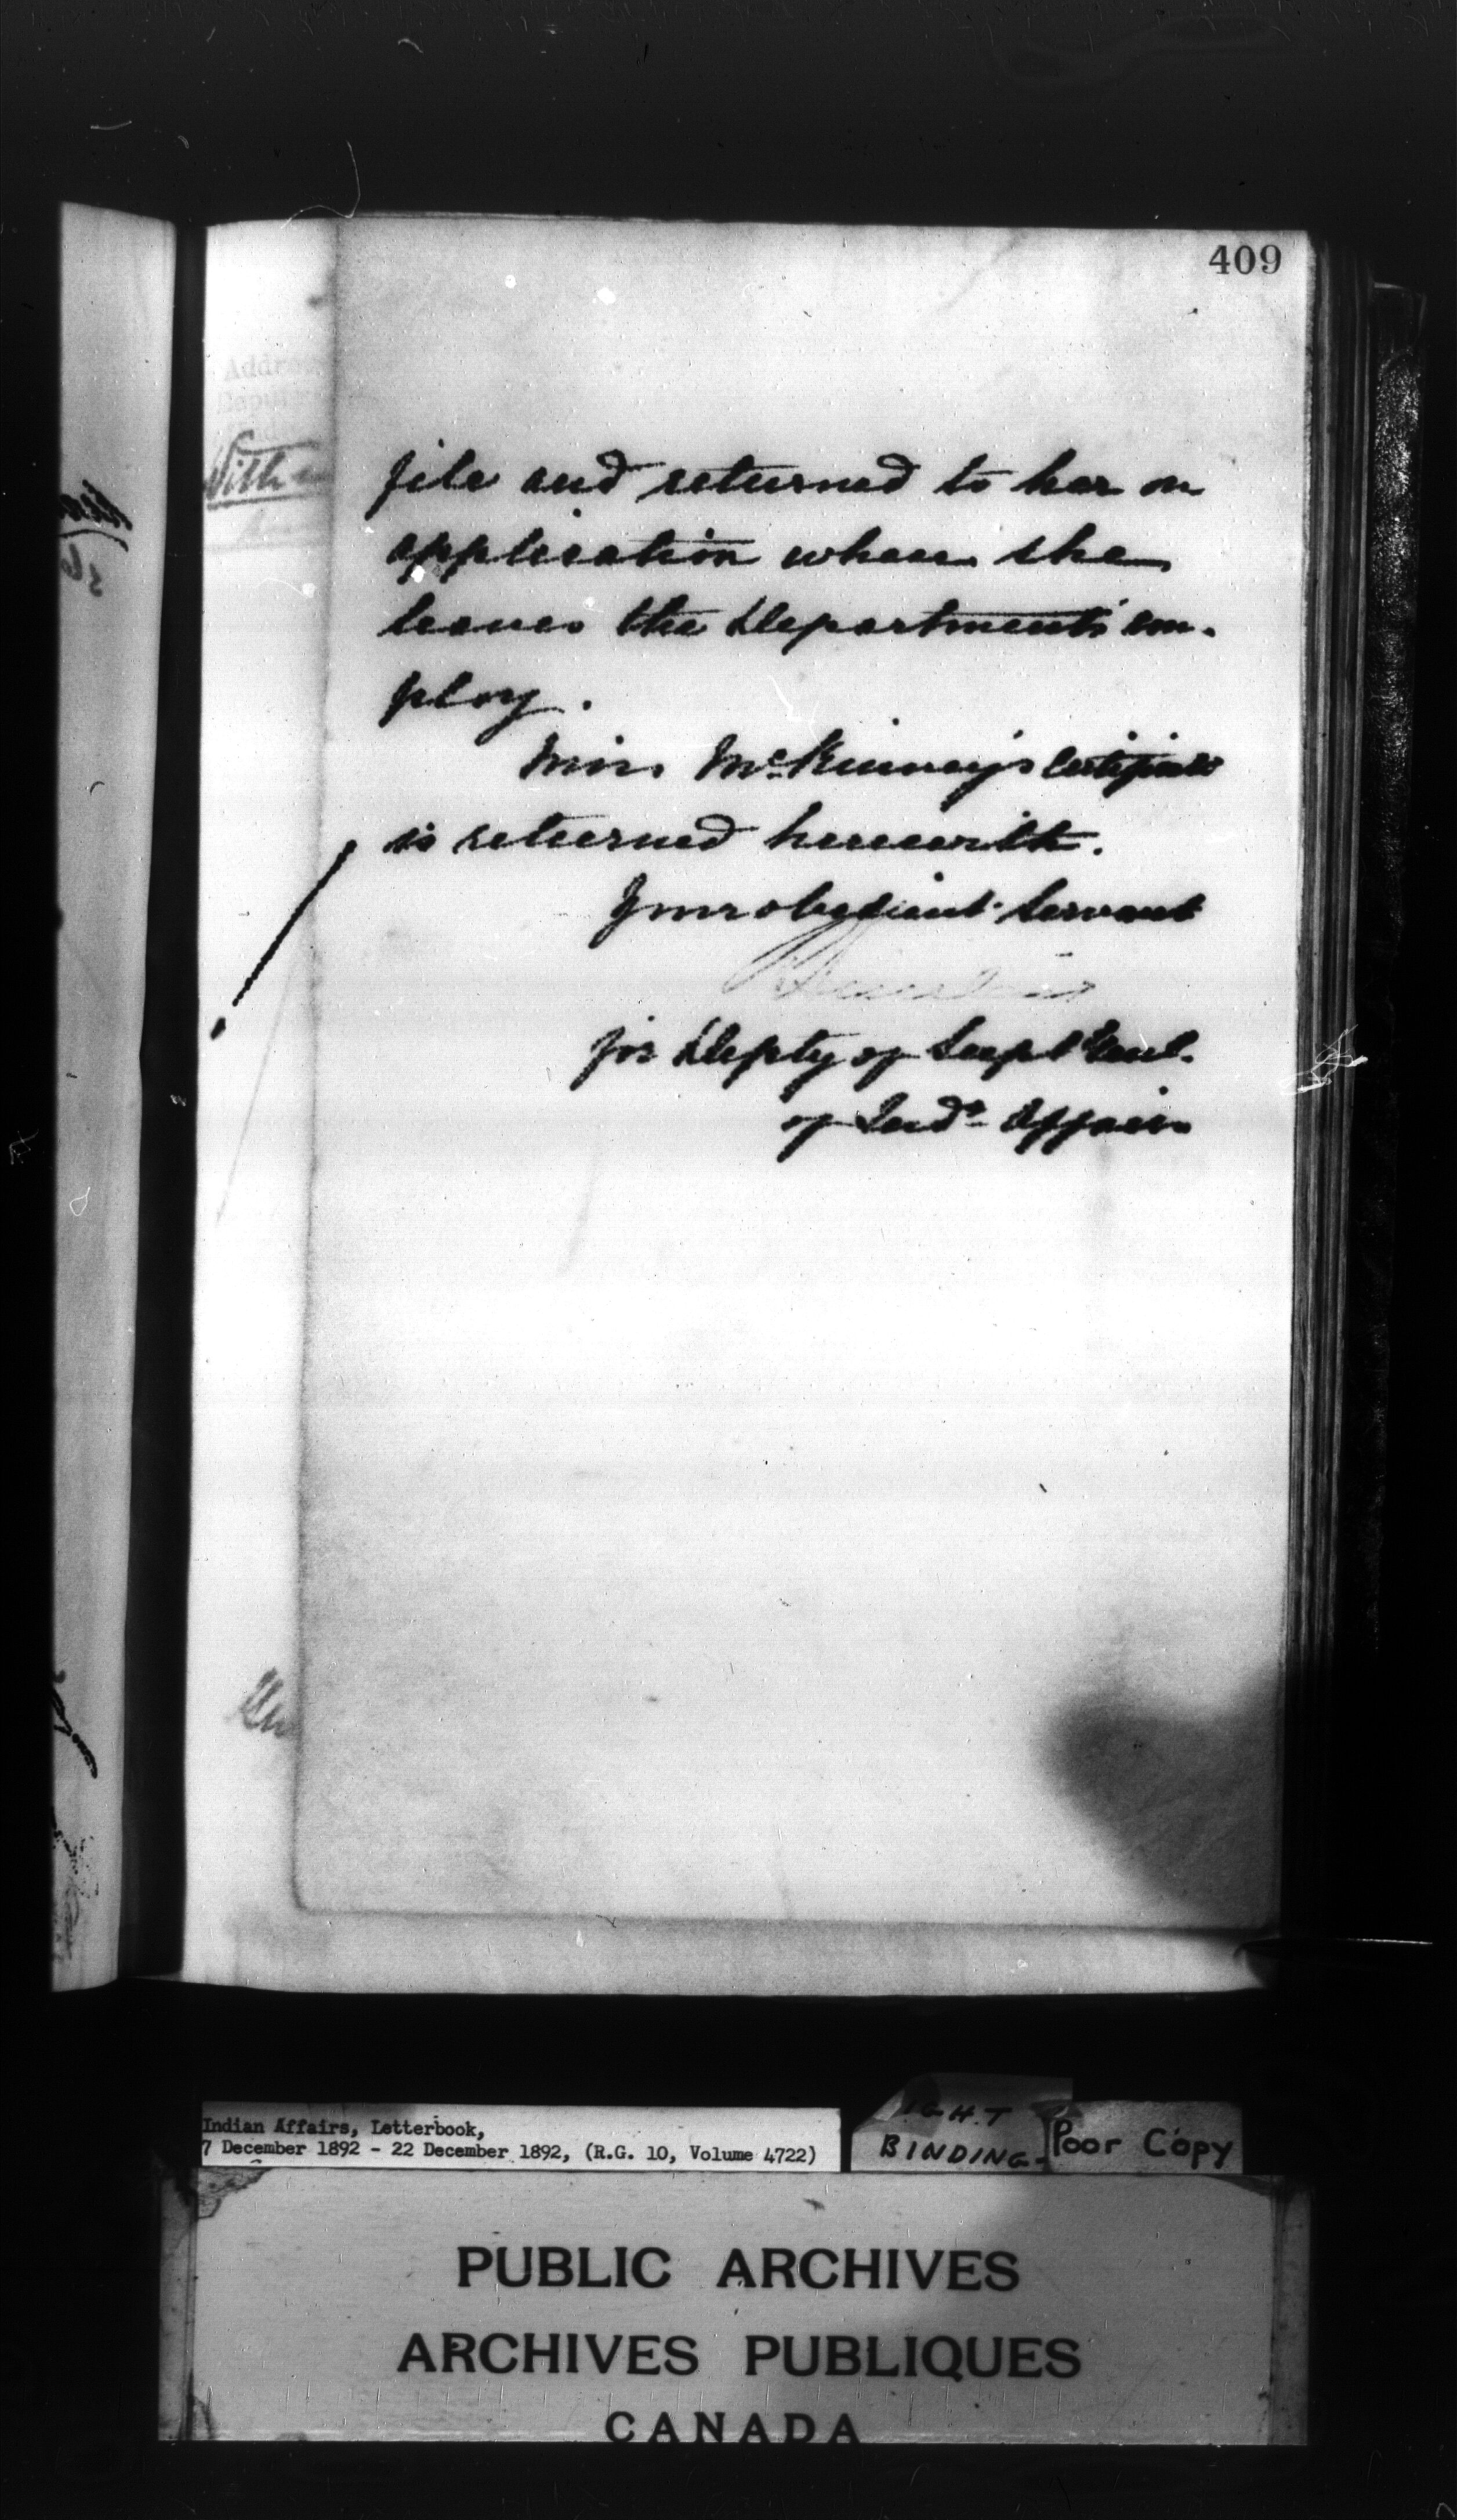 409
file and returned to her on
application when she
leaves the Department's em-
ploy.
Miss McKinney's Certificate
is returned herewith.
Your obedient Servant
for Depty of Supt Genl.
of Indn Affairs
Indian Affairs, Letterbook,
7 December 1892 - 22 December 1892, (R.G. 10, Volume 4722)
BINDING-
Poor Copy
PUBLIC ARCHIVES
ARCHIVES PUBLIQUES
CANADA